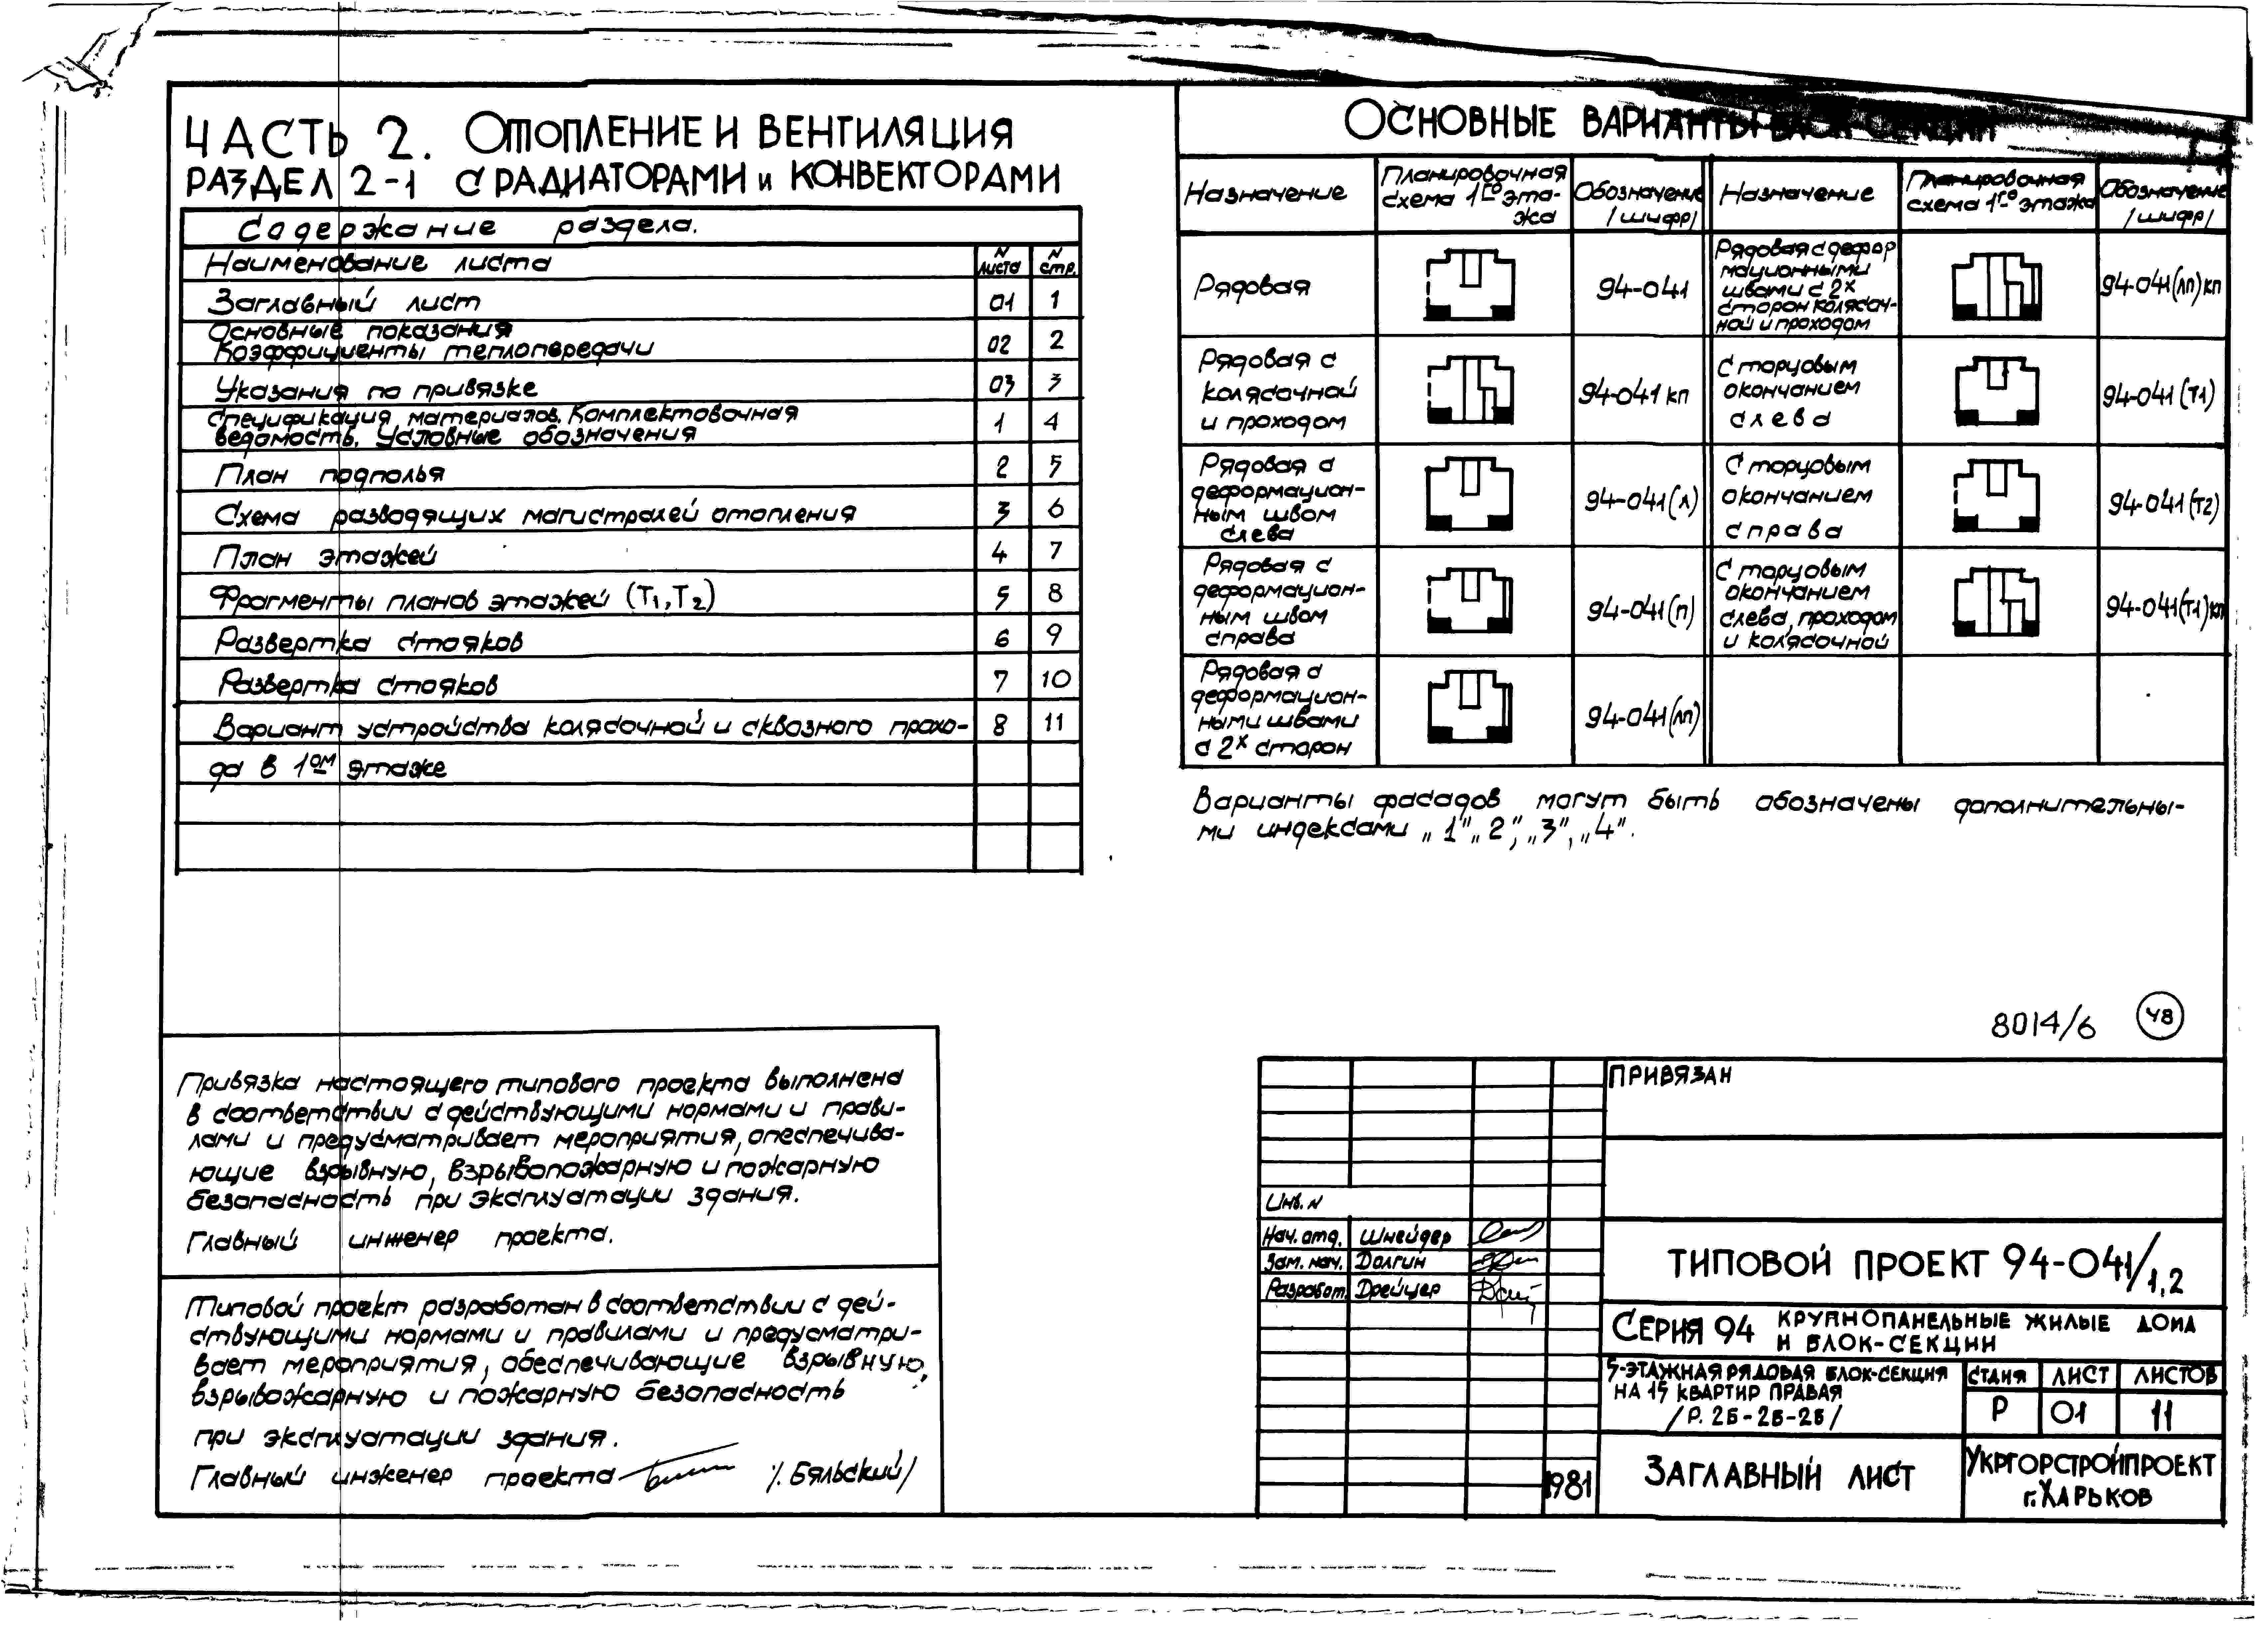 ЧАСТЬ 2. ОТОПЛЕНИЕ И ВЕНТИЛЯЦИЯ
РАЗДЕЛ 2-1 С РАДИАТОРАМИ и КОНВЕКТОРАМИ
Содержание раздела.
Наименование листа N листа N стр.
Заглавный лист 01 1
Основные показания
Коэффициенты теплопередачи 02 2
Указания по привязке 03 3
Спецификация материалов. Комплектовочная
ведомость. Условные обозначения 1 4
План подполья 2 5
Схема разводящих магистралей отопления 3 6
План этажей 4 7
Фрагменты планов этажей (Т1, Т2) 5 8
Развертка стояков 6 9
Развертка стояков 7 10
Вариант устройства колясочной и сквозного прохо- 8 11
да в 1ом этаже
ОСНОВНЫЕ ВАРИАНТЫ БЛОК-СЕКЦИИ
Назначение
Планировочная
схема 1го эта-
жа
Обозначение
/шифр/
Назначение
Планировочная
схема 1го этажа
Обозначение
/шифр/
Рядовая
94-041
Рядовая с дефор
мационными
швами с 2х
сторон колясоч-
ной и проходом
94-041(лп)кп
Рядовая с
колясочной
и проходом
94-041 кп
С торцовым
окончанием
слева
94-041(Т1)
Рядовая с
деформацион-
ным швом
слева
94-041(л)
С торцовым
окончанием
справа
94-041(Т2)
Рядовая с
деформацион-
ным швом
справа
94-041(п)
С торцовым
окончанием
слева, проходом
и колясочной
94-041(Т1)кп
Рядовая с
деформацион-
ными швами
с 2х сторон
94-041(лп)
Варианты фасадов могут быть обозначены дополнительны-
ми индексами „1" „2", „3", „4".
8014/6 48
Привязка настоящего типового проекта выполнена
в соответствии с действующими нормами и прави-
лами и предусматривает мероприятия, опеспечива-
ющие взрывную, взрывопожарную и пожарную
безопасность при эксплуатации здания.
Главный инженер проекта.
Типовой проект разработан в соответствии с дей-
ствующими нормами и правилами и предусматри-
вает мероприятия, обеспечивающие взрывную,
взрывожарную и пожарную безопасность
при эксплуатации здания.
Главный инженер проекта /. Бяльский/
ПРИВЯЗАН
Инв. N
Нач. отд. Шнейдер
Зам. нач. Долгин
Разработ. Дрейцер
1981
ТИПОВОЙ ПРОЕКТ 94-041/1,2
СЕРИЯ 94 КРУПНОПАНЕЛЬНЫЕ ЖИЛЫЕ ДОМА
И БЛОК-СЕКЦИИ
5-ЭТАЖНАЯ РЯДОВАЯ БЛОК-СЕКЦИЯ
НА 15 КВАРТИР ПРАВАЯ
/Р. 2Б-2Б-2Б/
СТАДИЯ ЛИСТ ЛИСТОВ
Р 01 11
ЗАГЛАВНЫЙ ЛИСТ
УКРГОРСТРОЙПРОЕКТ
г. ХАРЬКОВ